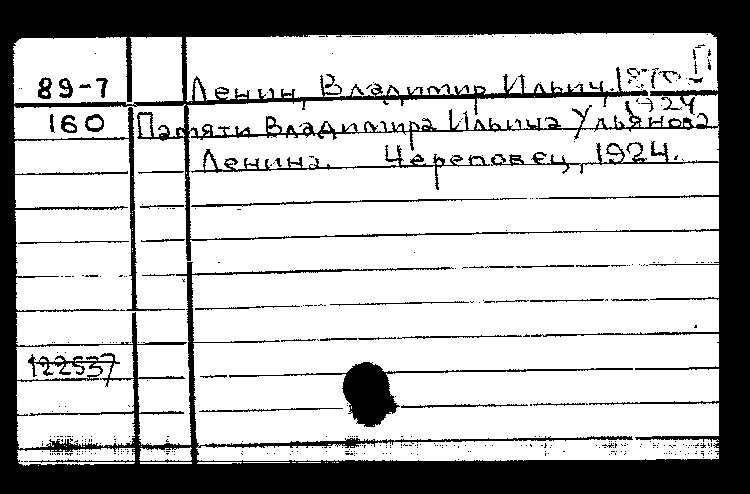 89-7 Ленин, Владимир Ильич, 1870-
1924
160 Памяти Владимира Ильича Ульянова
Ленина. Череповец, 1924.
122537